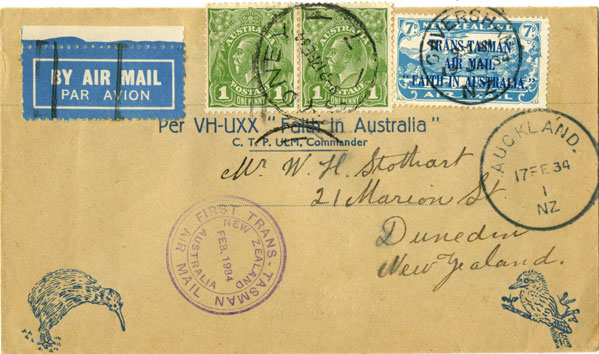 BY AIR MAIL
PAR AVION
AUSTRALIA
POSTAGE
1 ONE PENNY 1
AUSTRALIA
POSTAGE
1 ONE PENNY 1
SYDNEY
7D 7D
TRANS-TASMAN
AIR MAIL
"FAITH IN AUSTRALIA"
AIR MAIL
CAVERSHAM
34
N.Z
Per VH-UXX "Faith in Australia"
C. T. P. ULM, Commander
Mr. W. H. Stothart
21 Marion St
Dunedin
New Zealand.
AUCKLAND.
17 FE 34
1
NZ
FIRST TRANS-TASMAN
AIR MAIL
NEW ZEALAND
FEB. 1934
AUSTRALIA